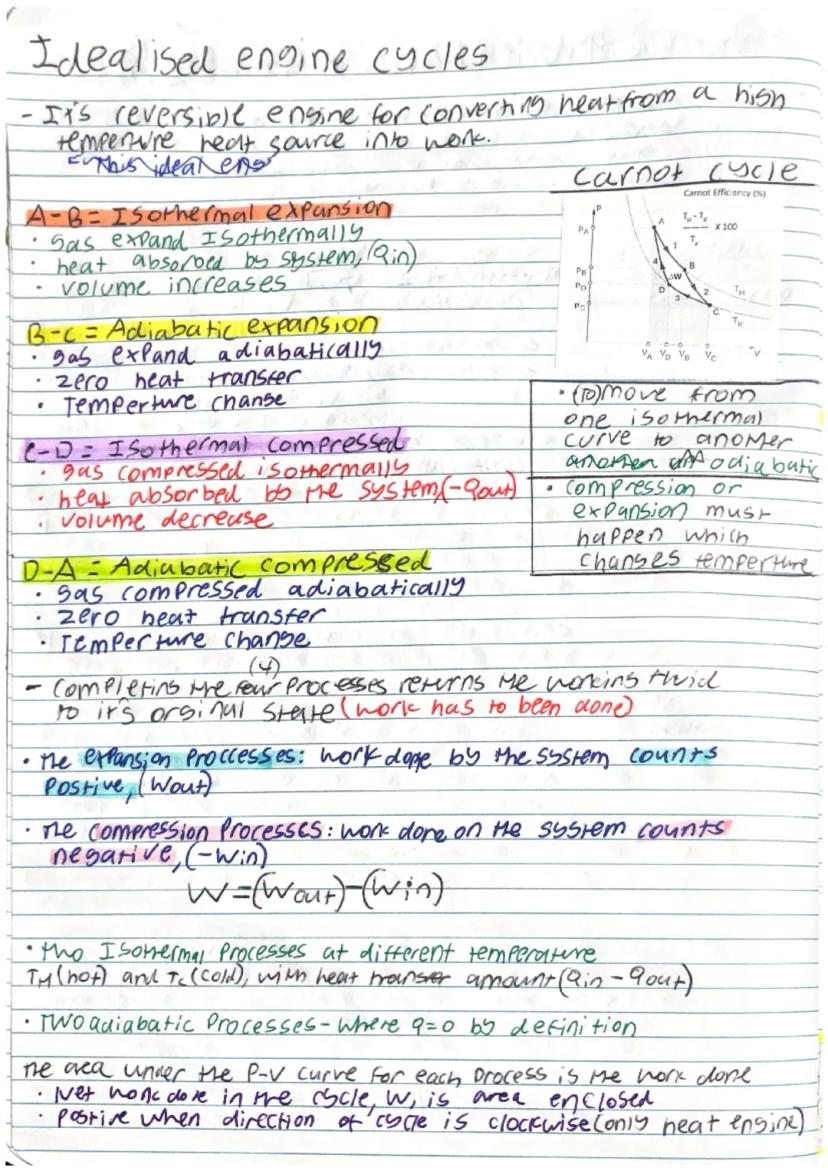 Idealised engine cycles
- It's reversible engine for converting heat from a high
temperture heat source into work.
This ideal eng
Carnot cycle
Carnot Efficiency (%)
A-B = Isothermal expansion
· gas expand Isothermally
· heat absorbed by system, (Qin)
· volume increases
P
PA
PB
PD
PC
A
1
B
4
W
D
2
3
C
TH
TK
VA VD VB VC V
X 100
B-C = Adiabatic expansion
· gas expand adiabatically
· zero heat transfer
· Temperture change
· (To) move from
one isothermal
curve to another
another adiabatic
· compression or
expansion must
happen which
changes temperture
C-D = Isothermal compressed
· gas compressed isothermally
· heat absorbed bo the system, (-Qout)
· volume decrease
D-A = Adiabatic compressed
· gas compressed adiabatically
· zero heat transfer
· Temperture change
(4)
- completing the four processes returns the working fluid
to it's orginal state (work has to been done)
· The expansion proccesses: work done by the system counts
postive, (Wout)
· The compression processes: work done on the system counts
negative, (-Win)
W = (Wout) - (Win)
· Two Isothermal processes at different temperature
TH (hot) and Tc (cold), with heat transer amount (Qin - Qout)
· Two adiabatic processes - where q=0 by definition
The area under the P-V curve for each process is the work done
· Net work done in the cycle, W, is area enclosed
· postive when direction of cycle is clockwise (only heat engine)